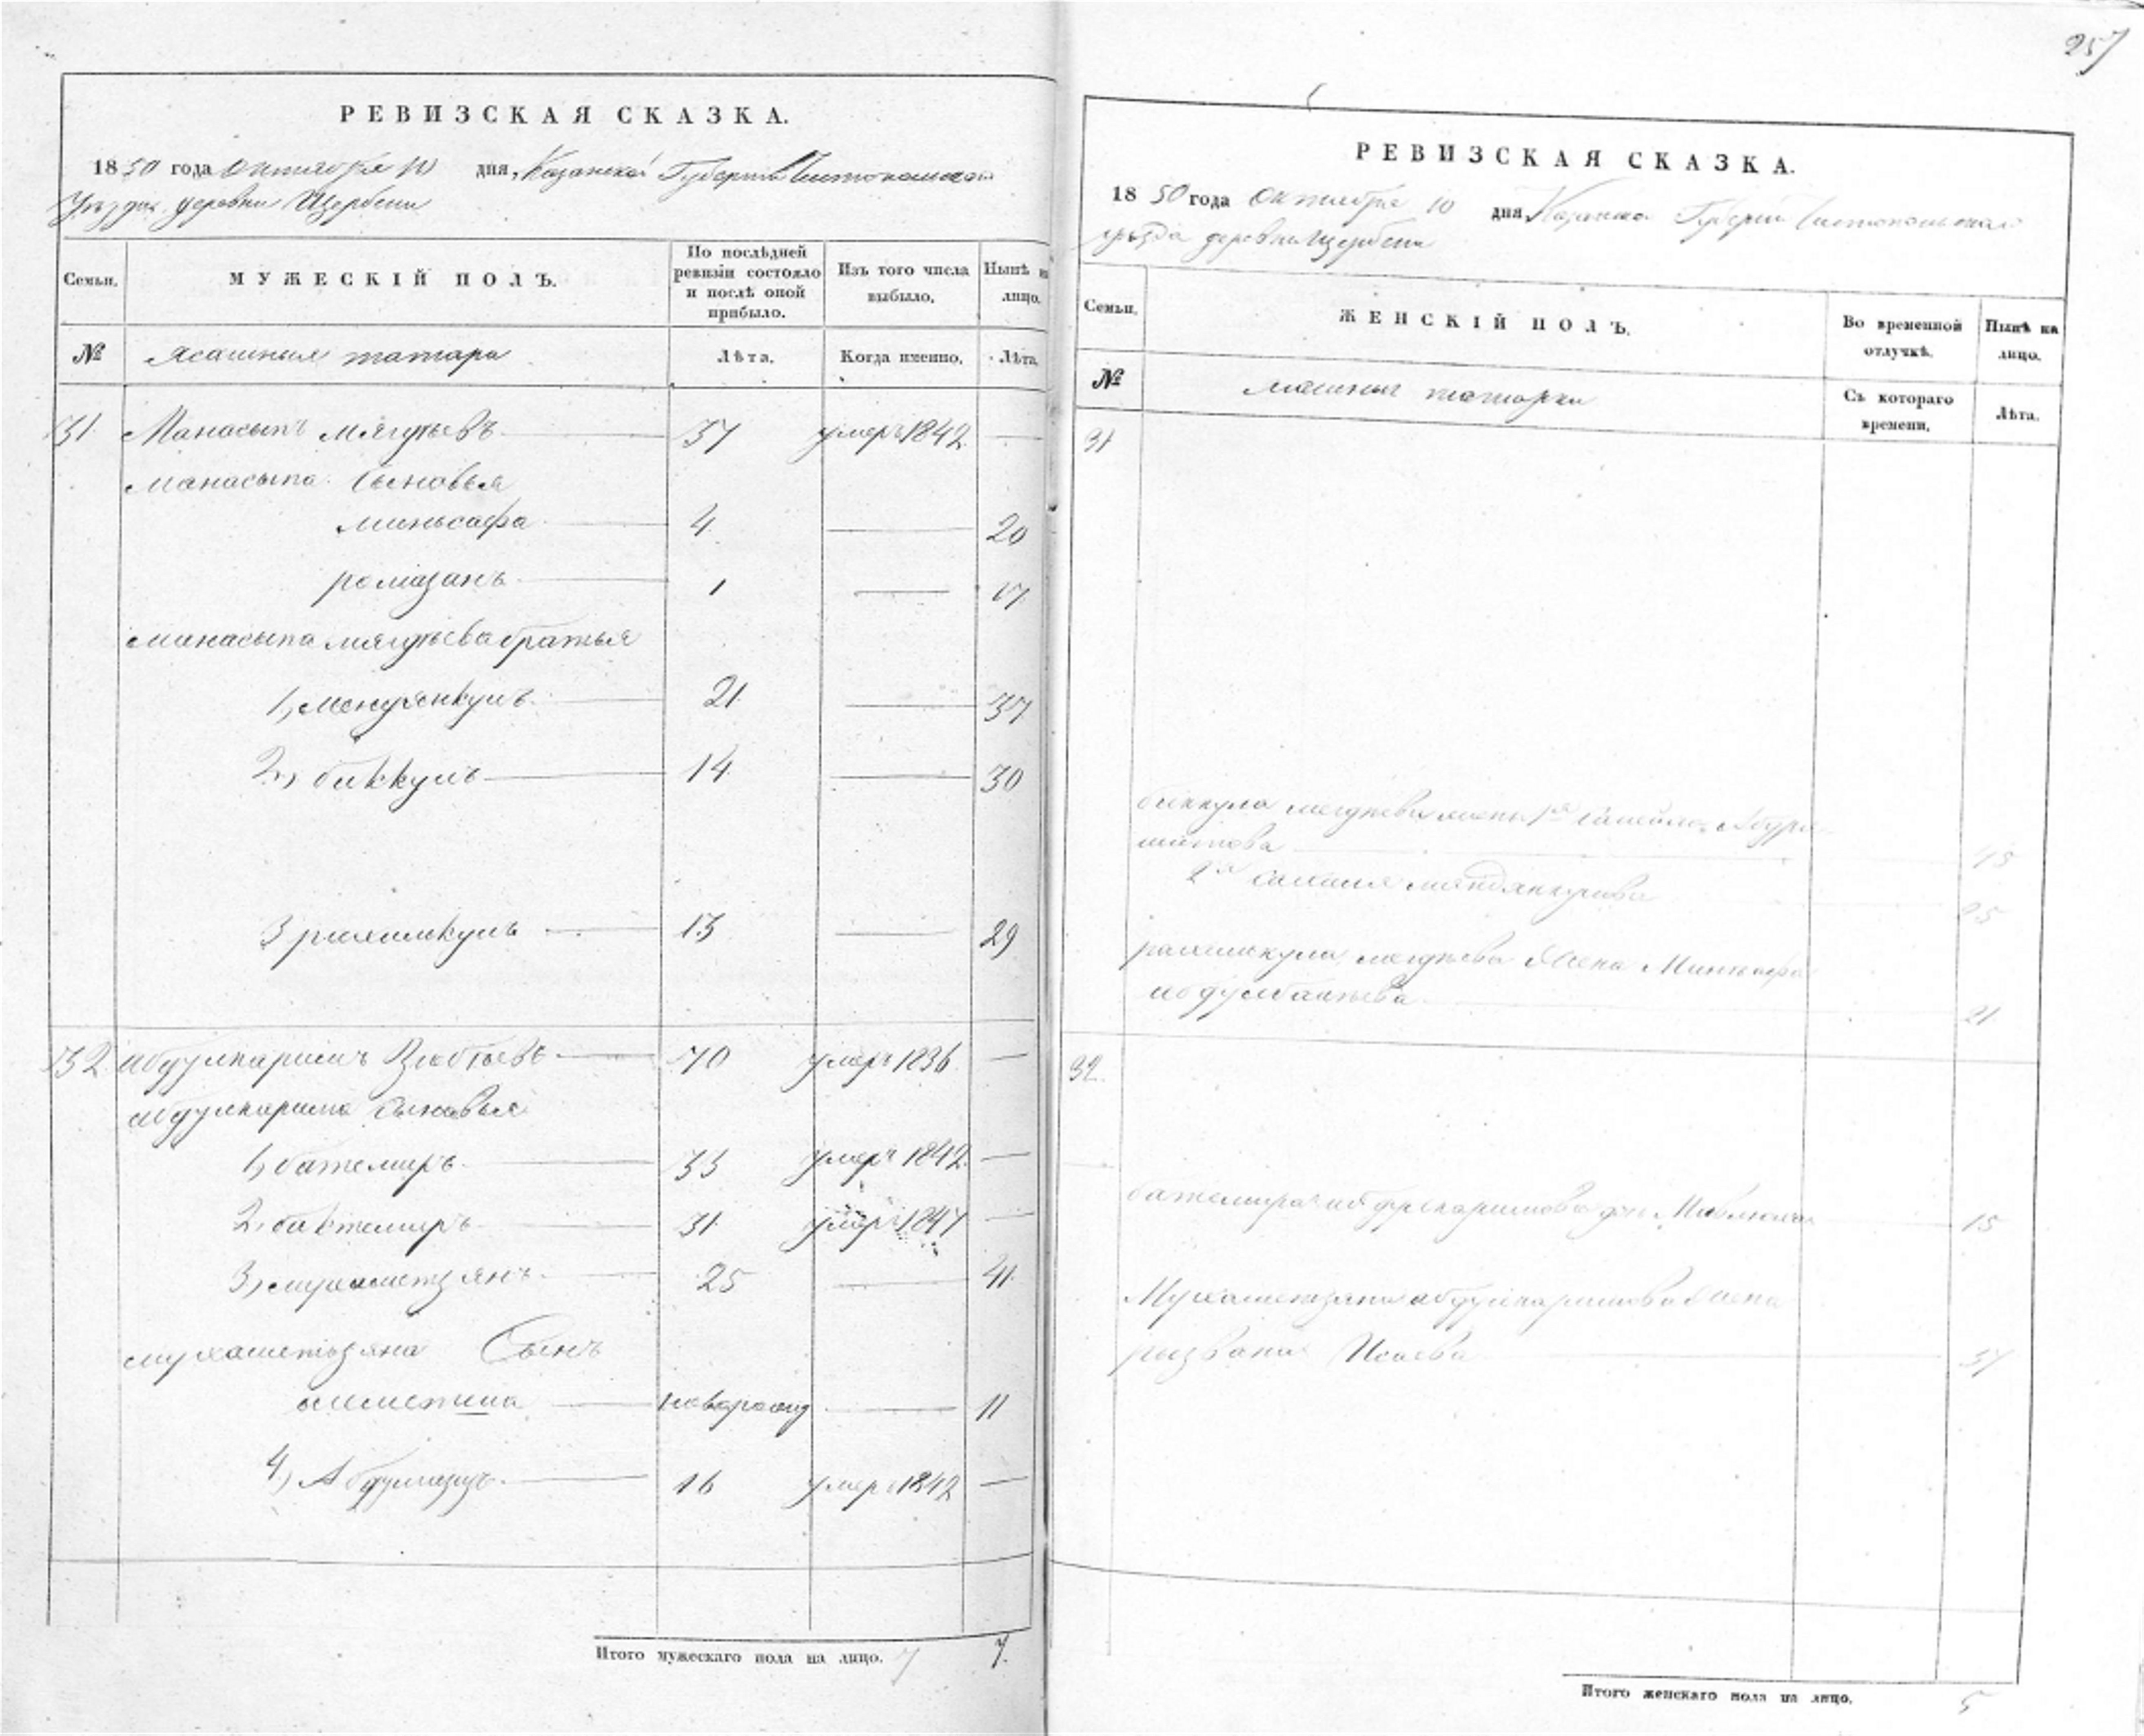 257
РЕВИЗСКАЯ СКАЗКА.
1850 года Октября 10 дня, Казанской Губернии Чистопольскаго
Уѣзда деревни Щербени
Семьи.
МУЖЕСКІЙ ПОЛЪ.
По послѣдней ревизіи состояло и послѣ оной прибыло.
Изъ того числа выбыло.
Нынѣ на лицо.
№ ясашныя татара Лѣта. Когда именно. Лѣта.
31. Манасыпъ мягдѣевъ 37 умеръ 1842 —
манасыпа Сыновья
миньсафа 4. — 20
ромазанъ 1 — 17
манасыпа мягдѣева братья
1, мендянкулъ 21. — 37
2, биккулъ 14. — 30
3 рахимкулъ 13 — 29
32. абдулкаримъ 70 умеръ 1836 —
абдулкарима Сыновья
1, батемиръ 33 умеръ 1842. —
2, бактемиръ 31. умеръ 1847 —
3, мухаметзянъ 25 — 41.
мухаметьзяна Сынъ
новорожд — 11
4, Абдулазизъ 16 умеръ 1842 —
Итого мужескаго пола на лицо. 7 7.
РЕВИЗСКАЯ СКАЗКА.
1850 года Октября 10 дня, Казанской Губерніи Чистопольскаго
уѣзда деревни Щербени
Семьи.
ЖЕНСКІЙ ПОЛЪ.
Во временной отлучкѣ.
Нынѣ на лицо.
№ ясашныя татарки Съ котораго времени. Лѣта.
31
биккула мягдѣева жены 1я Абдра
шитова 45
2я мендянкулова 25
рахимкула мягдѣева жена
абдулбакѣева 21.
32.
батемира абдулкаримова дочь 15
Мухаметзяна абдулкаримова жена
ризвана Исаева 37
Итого женскаго пола на лицо. 5